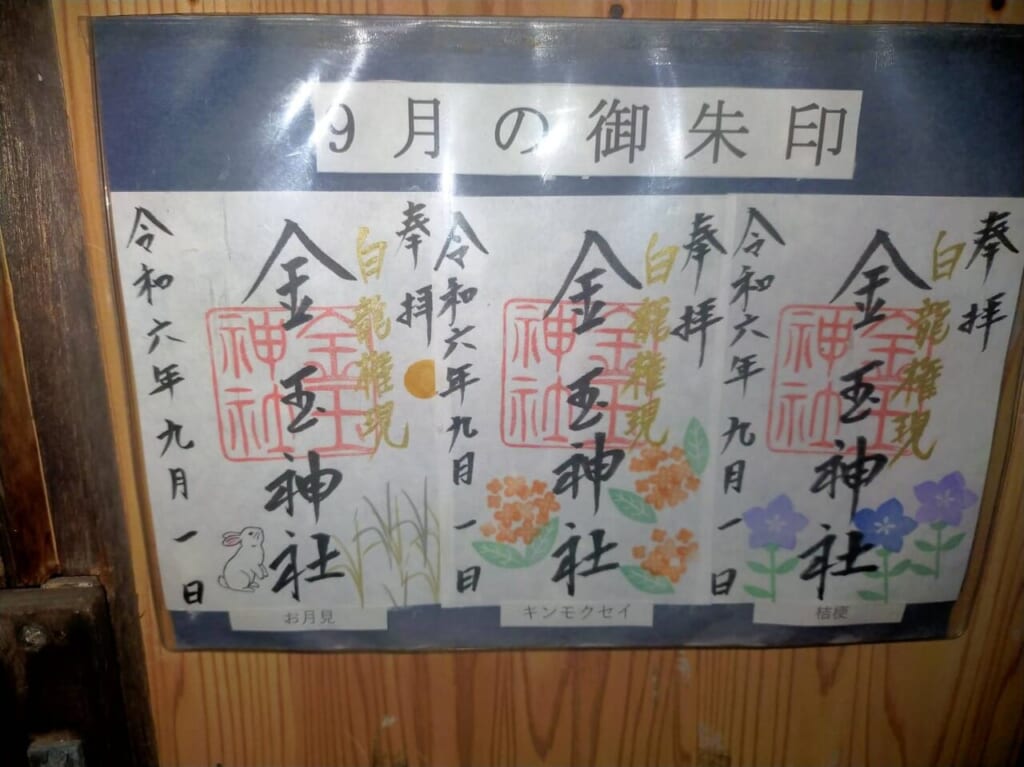 9月の御朱印
奉拝
白龍権現
金玉神社
金玉神社
令和六年九月一日
お月見
奉拝
白龍権現
金玉神社
金玉神社
令和六年九月一日
キンモクセイ
奉拝
白龍権現
金玉神社
金玉神社
令和六年九月一日
桔梗